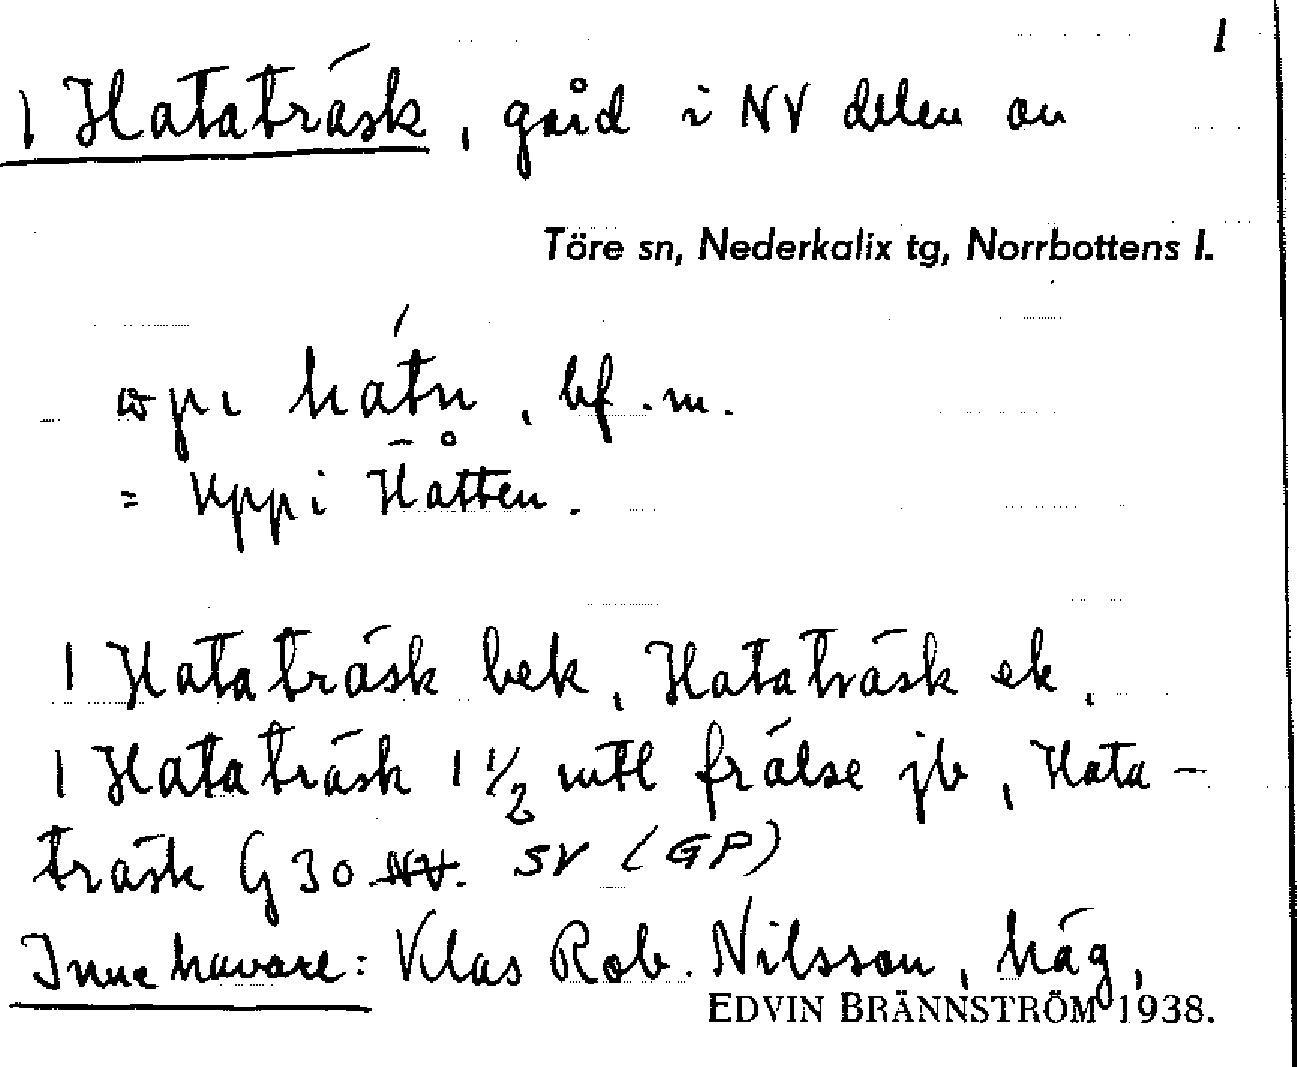 1
1 Hataträsk, gård i NV delen av
Töre sn, Nederkalix tg, Norrbottens l.
hátn, bf. m.
= Uppi Håtten.
1 Hataträsk bek, Hataträsk ek,
1 Hataträsk 1 1/2 mtl frälse jb, Hata-
träsk G 30 NV. SV (GP)
Innehavare: Klas Rob. Nilsson, häg,
EDVIN BRÄNNSTRÖM 1938.